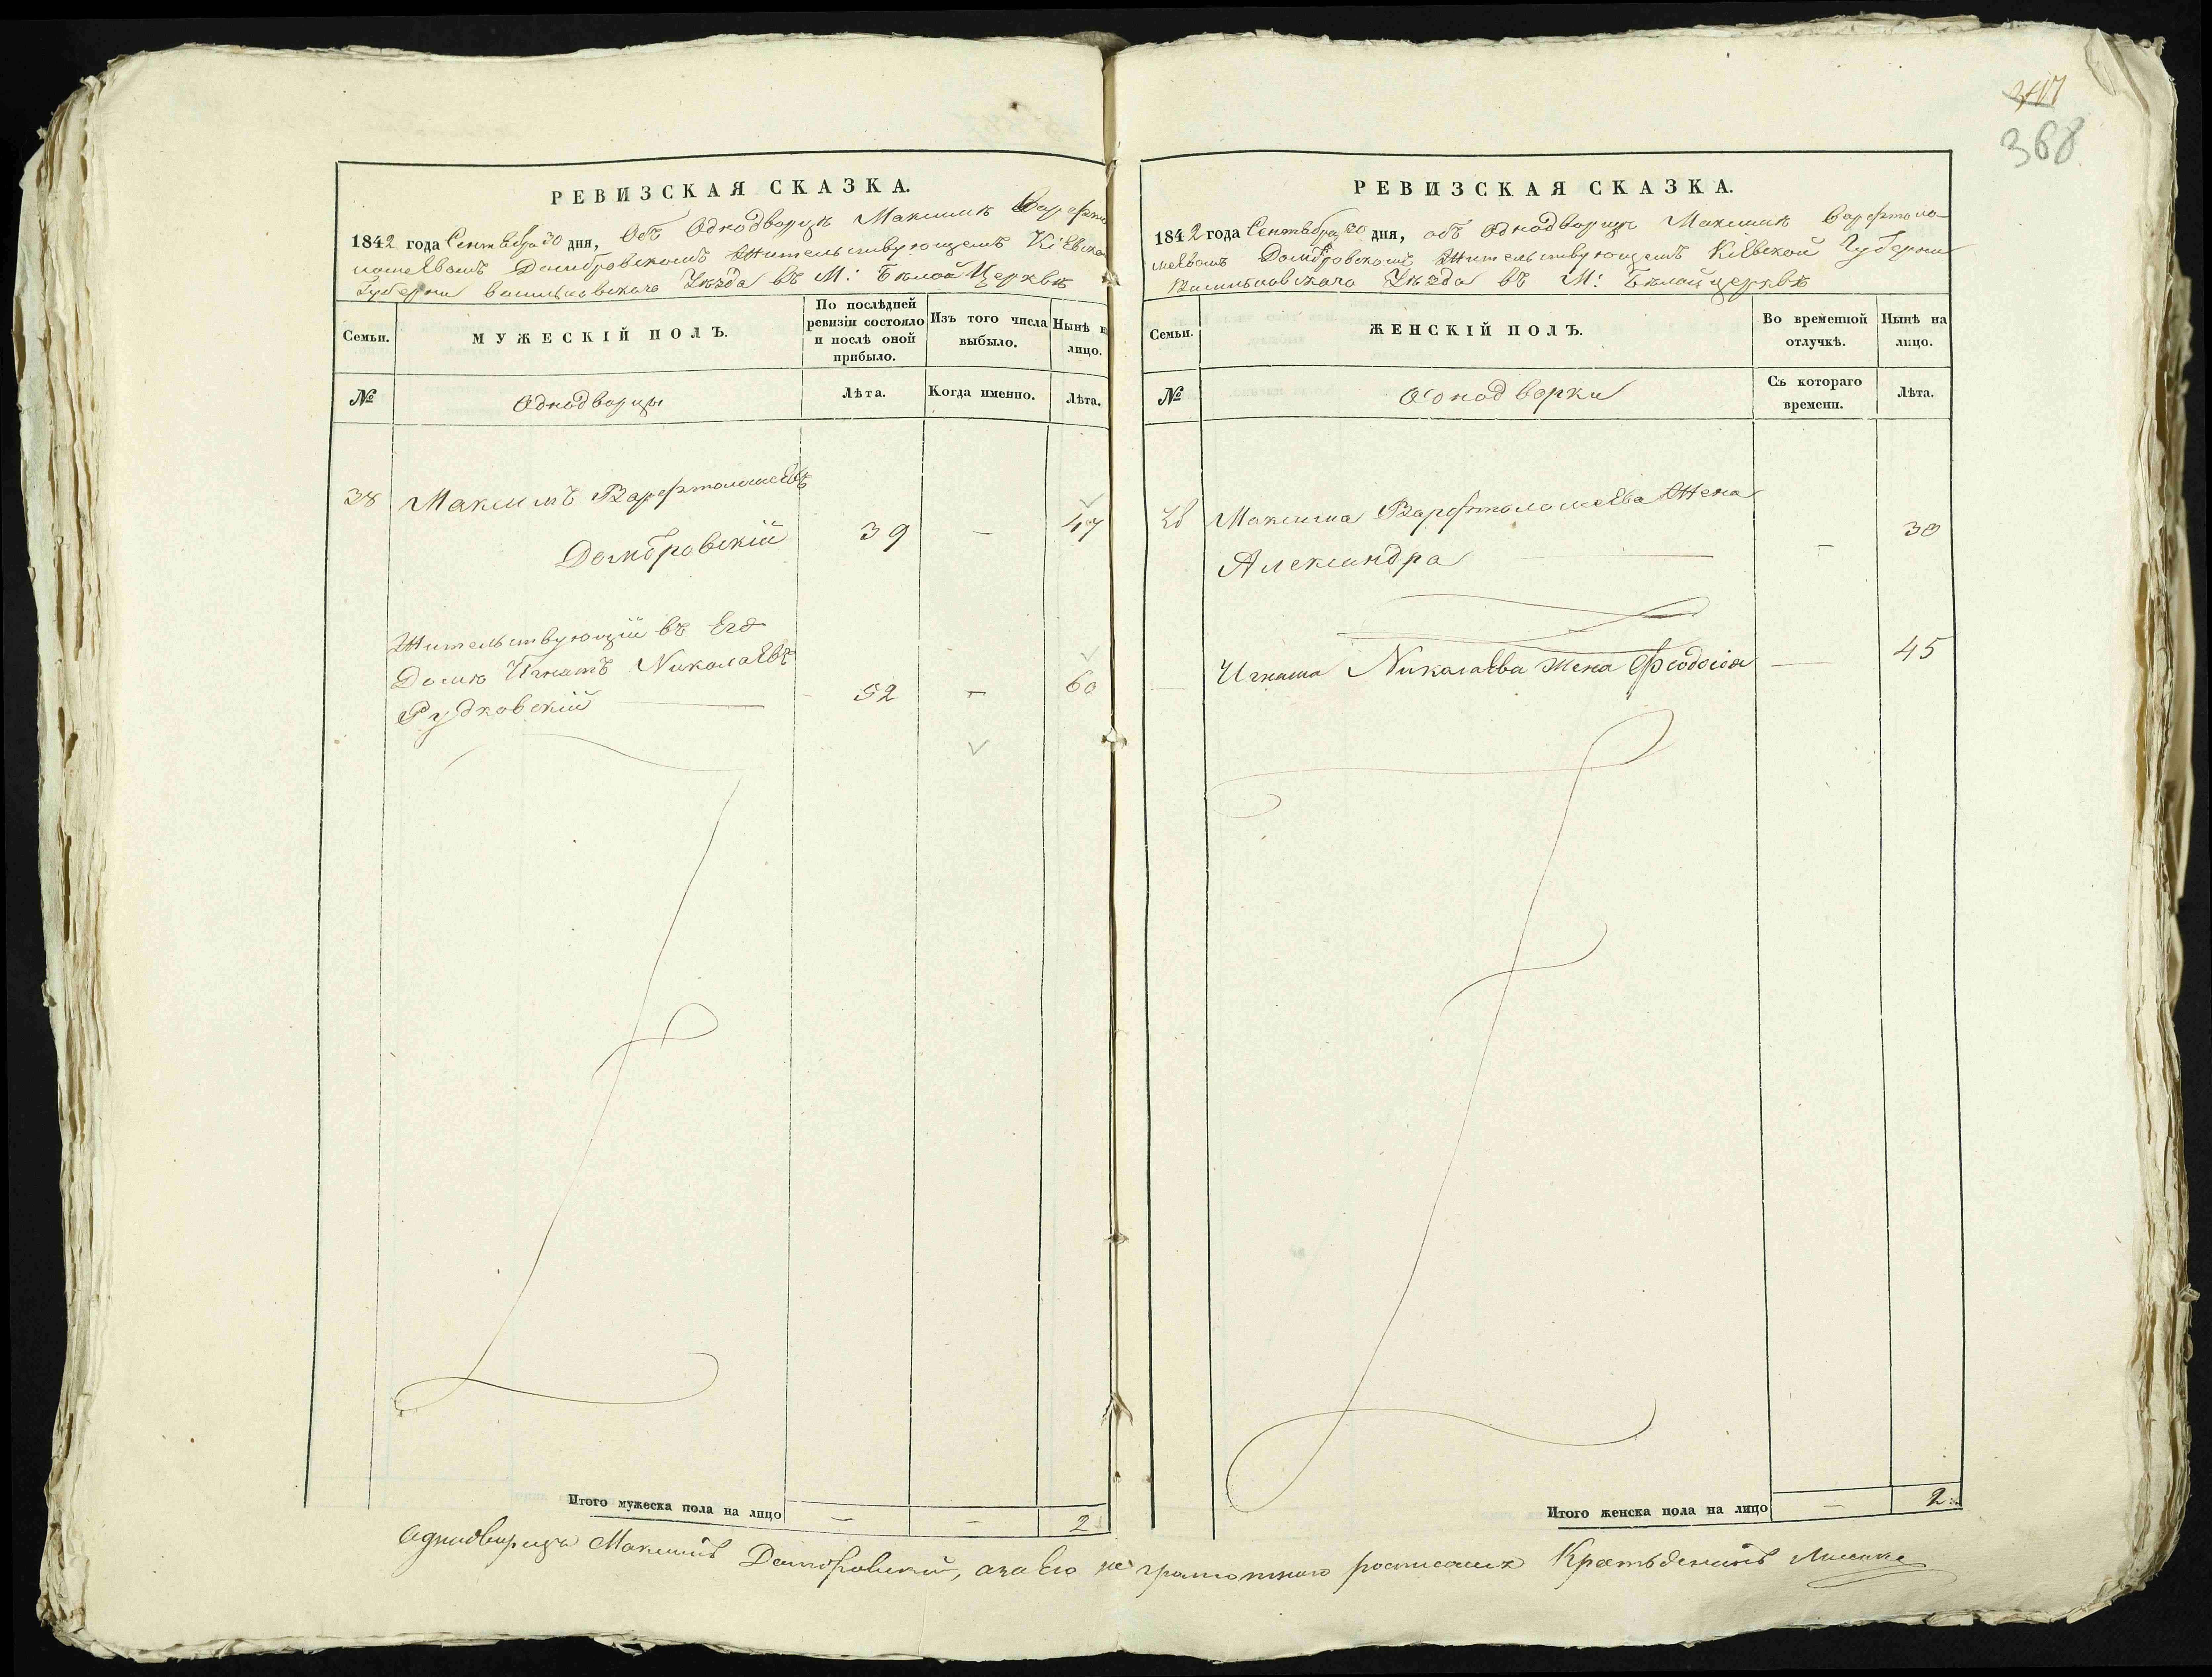 347
368
РЕВИЗСКАЯ СКАЗКА.
1842 года Сентября 30 дня, Объ Однодворцѣ Максимѣ Варфто
ломеевомъ Домбровскомъ Жительствующемъ Кіевской
Губерни Васильковскаго Уѣзда въ М: Бѣлой Церквѣ
Семьи.
МУЖЕСКІЙ ПОЛЪ.
По послѣдней ревизіи состояло и послѣ оной прибыло.
Изъ того числа выбыло.
Нынѣ н лицо.
№
Однодворцы
Лѣта.
Когда именно.
Лѣта.
38 Максимъ Варфтоломеевъ
Домбровскій 39 — 47
Жительствующій въ Его
Домѣ Игнатъ Николаевъ
Рудковскій — 52 — 60
Итого мужеска пола на лицо — — 2
РЕВИЗСКАЯ СКАЗКА.
1842 года Сентября 30 дня, объ Однодворцѣ Максимѣ Варфтоло-
меевомъ Домбровскомъ Жительствующемъ Кіевской Губерни
Васильковскаго Уѣзда въ М: Бѣлой церквѣ
Семьи.
ЖЕНСКІЙ ПОЛЪ.
Во временной отлучкѣ.
Нынѣ на лицо.
№
Однодворки
Съ котораго времени.
Лѣта.
38 Максима Варфтоломеева Жена
Александра — — 30
Игната Николаева жена Феодосія — 45
Итого женска пола на лицо — 2
Однодворецъ Максимъ Домбровский, аза Его не грамотного росписался